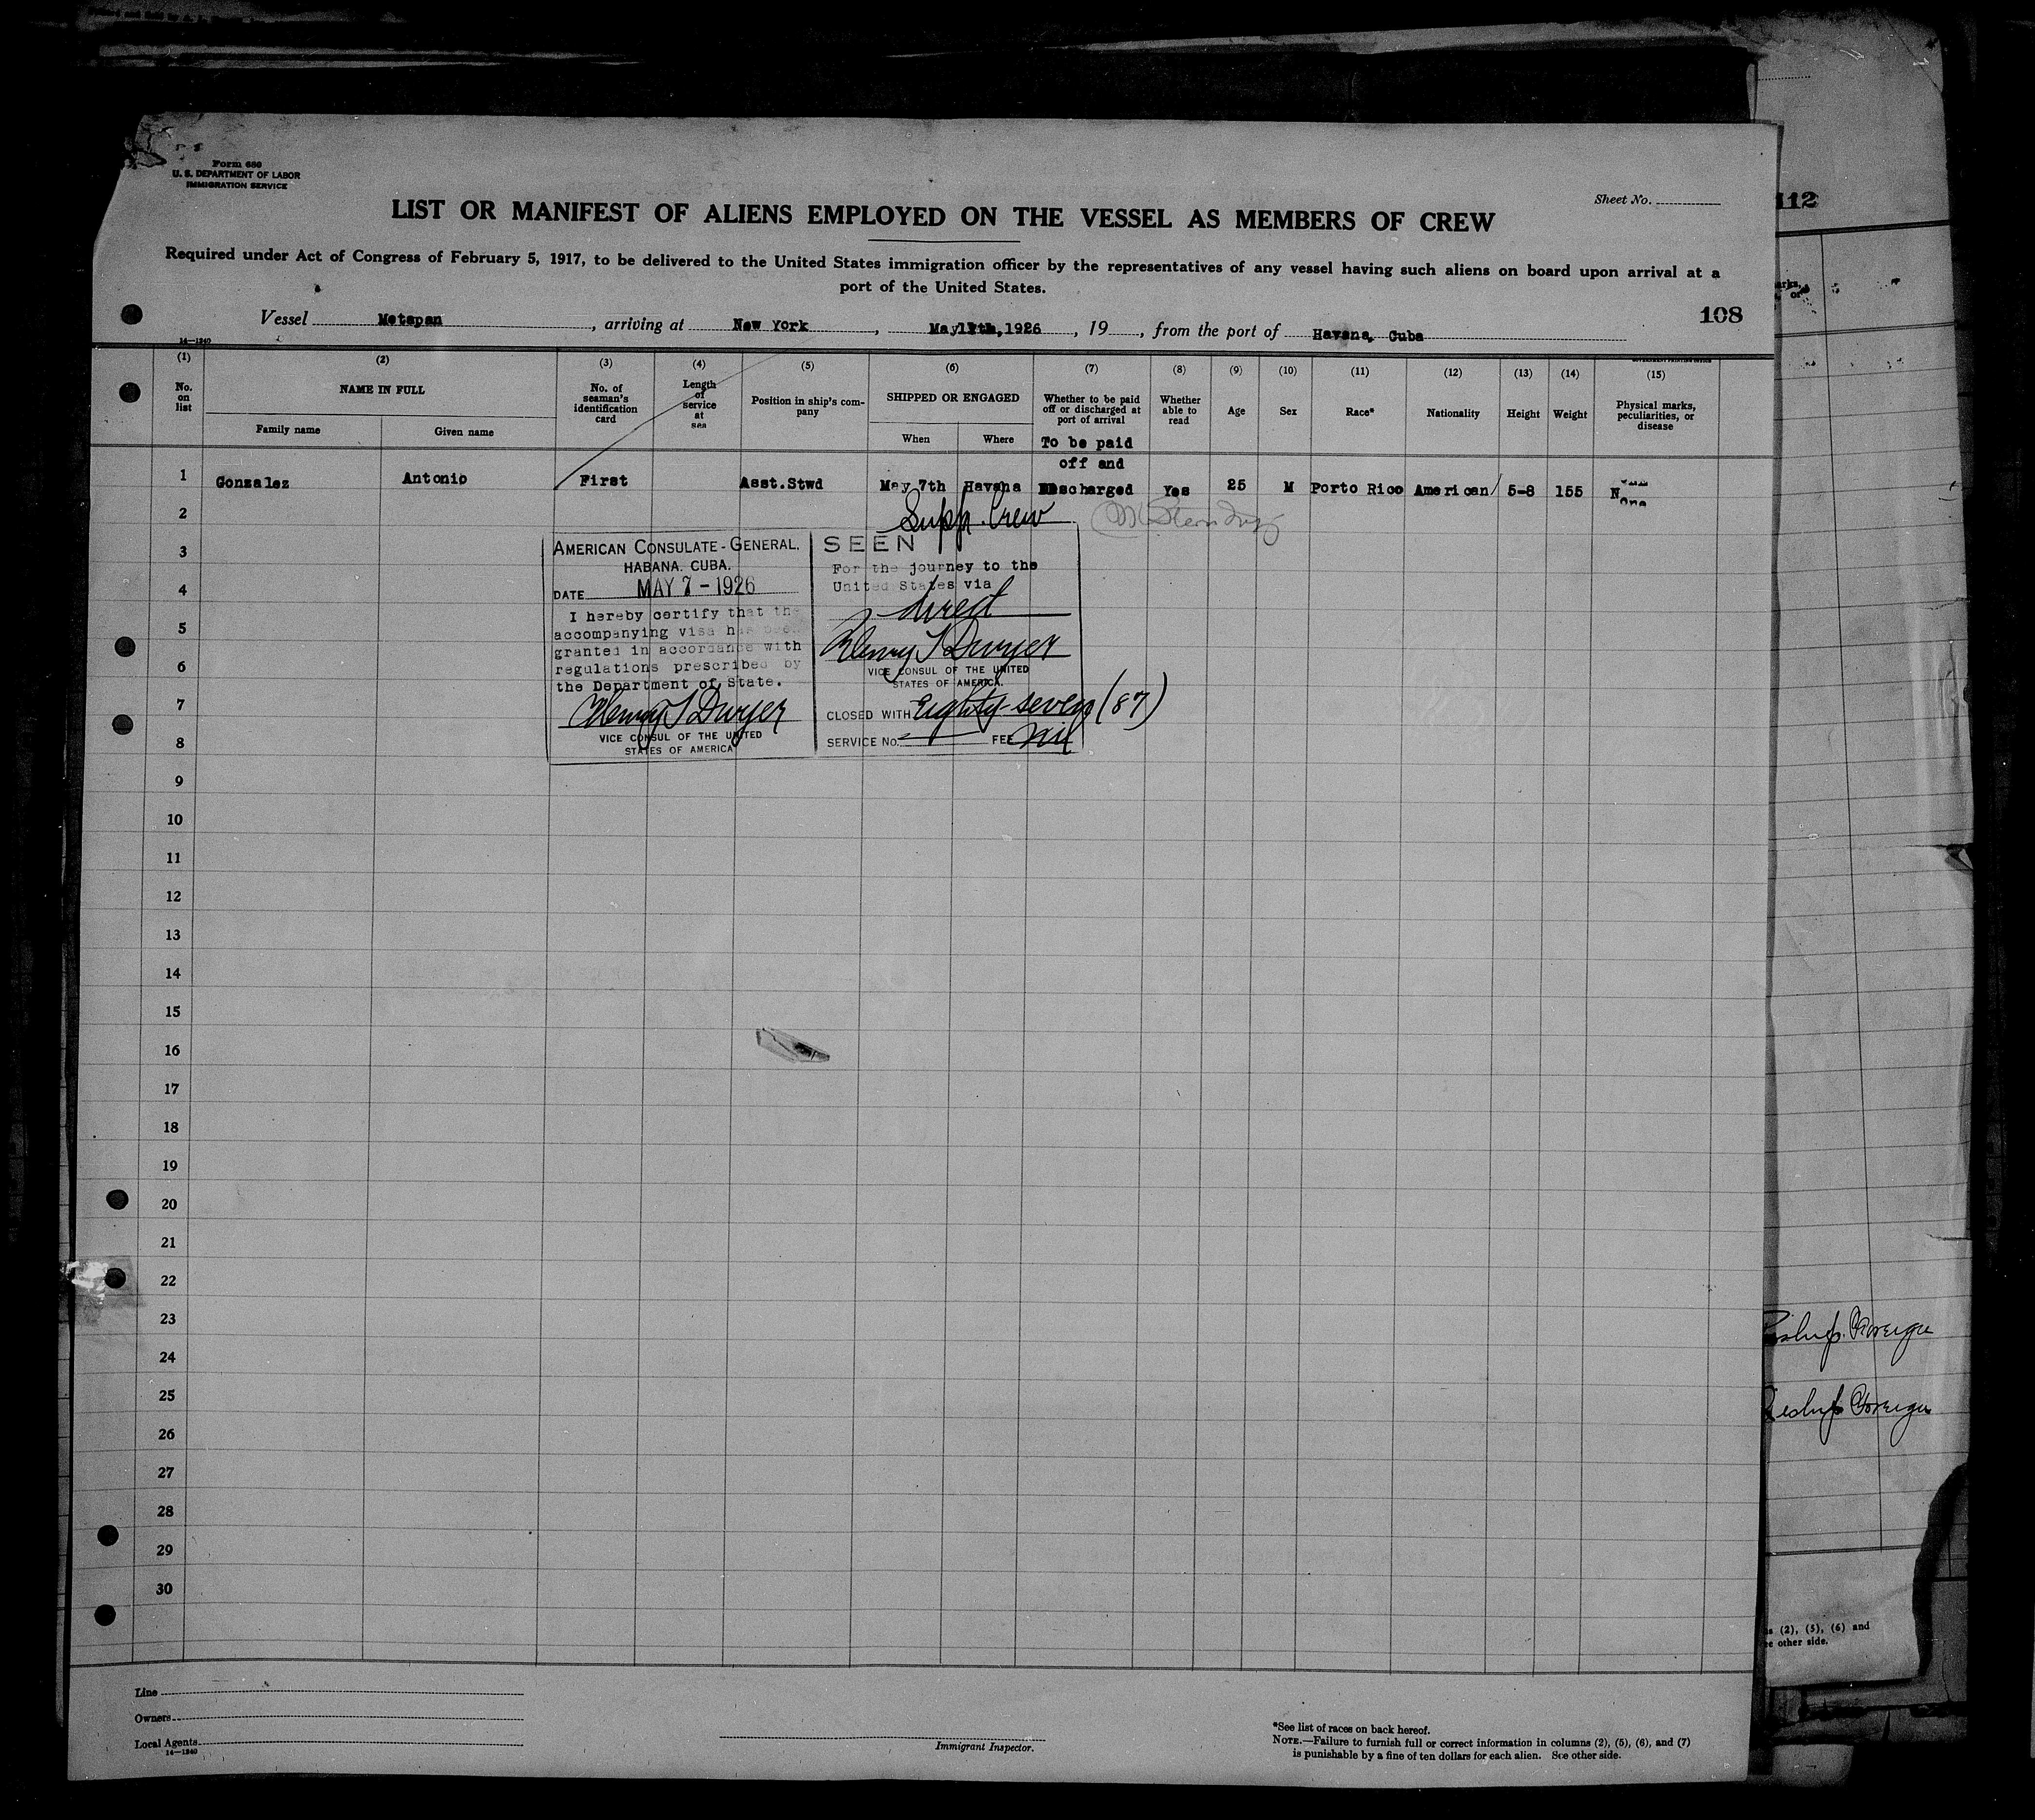 112
Form 680
U. S. DEPARTMENT OF LABOR
IMMIGRATION SERVICE
Sheet No.
LIST OR MANIFEST OF ALIENS EMPLOYED ON THE VESSEL AS MEMBERS OF CREW
Required under Act of Congress of February 5, 1917, to be delivered to the United States immigration officer by the representatives of any vessel having such aliens on board upon arrival at a
port of the United States.
108
Vessel Metapan, arriving at New York, May , 1926, 19 , from the port of Havana, Cuba
14—1240
GOVERNMENT PRINTING OFFICE
(1) (2) (3) (4) (5) (6) (7) (8) (9) (10) (11) (12) (13) (14) (15)
No. on list
NAME IN FULL
Family name
Given name
No. of seaman's identification card
Length of service at sea
Position in ship's company
SHIPPED OR ENGAGED
When
Where
Whether to be paid off or discharged at port of arrival
Whether able to read
Age
Sex
Race*
Nationality
Height
Weight
Physical marks, peculiarities, or disease
To be paid
off and
1 Gonzalez Antonio First Asst.Stwd May 7th Havana Discharged Yes 25 M Porto Rico American 5-8 155 None
2
Supp. Crew
3
4
5
6
7
8
AMERICAN CONSULATE-GENERAL,
HABANA. CUBA.
DATE MAY 7-1926
I hereby certify that the
accompanying visa has been
granted in accordance with
regulations prescribed by
the Department of State.
Henry T Dwyer
VICE CONSUL OF THE UNITED
STATES OF AMERICA
SEEN
For the journey to the
United States via
direct
Henry T Dwyer
VICE CONSUL OF THE UNITED
STATES OF AMERICA.
CLOSED WITH Eighty-seven (87)
SERVICE No. FEE Nil
9
10
11
12
13
14
15
16
17
18
19
20
21
22
23
24
25
26
27
28
29
30
Line
Owners
Local Agents
14—1240
Immigrant Inspector.
*See list of races on back hereof.
NOTE.—Failure to furnish full or correct information in columns (2), (5), (6), and (7)
is punishable by a fine of ten dollars for each alien. See other side.
(2), (5), (6) and
other side.